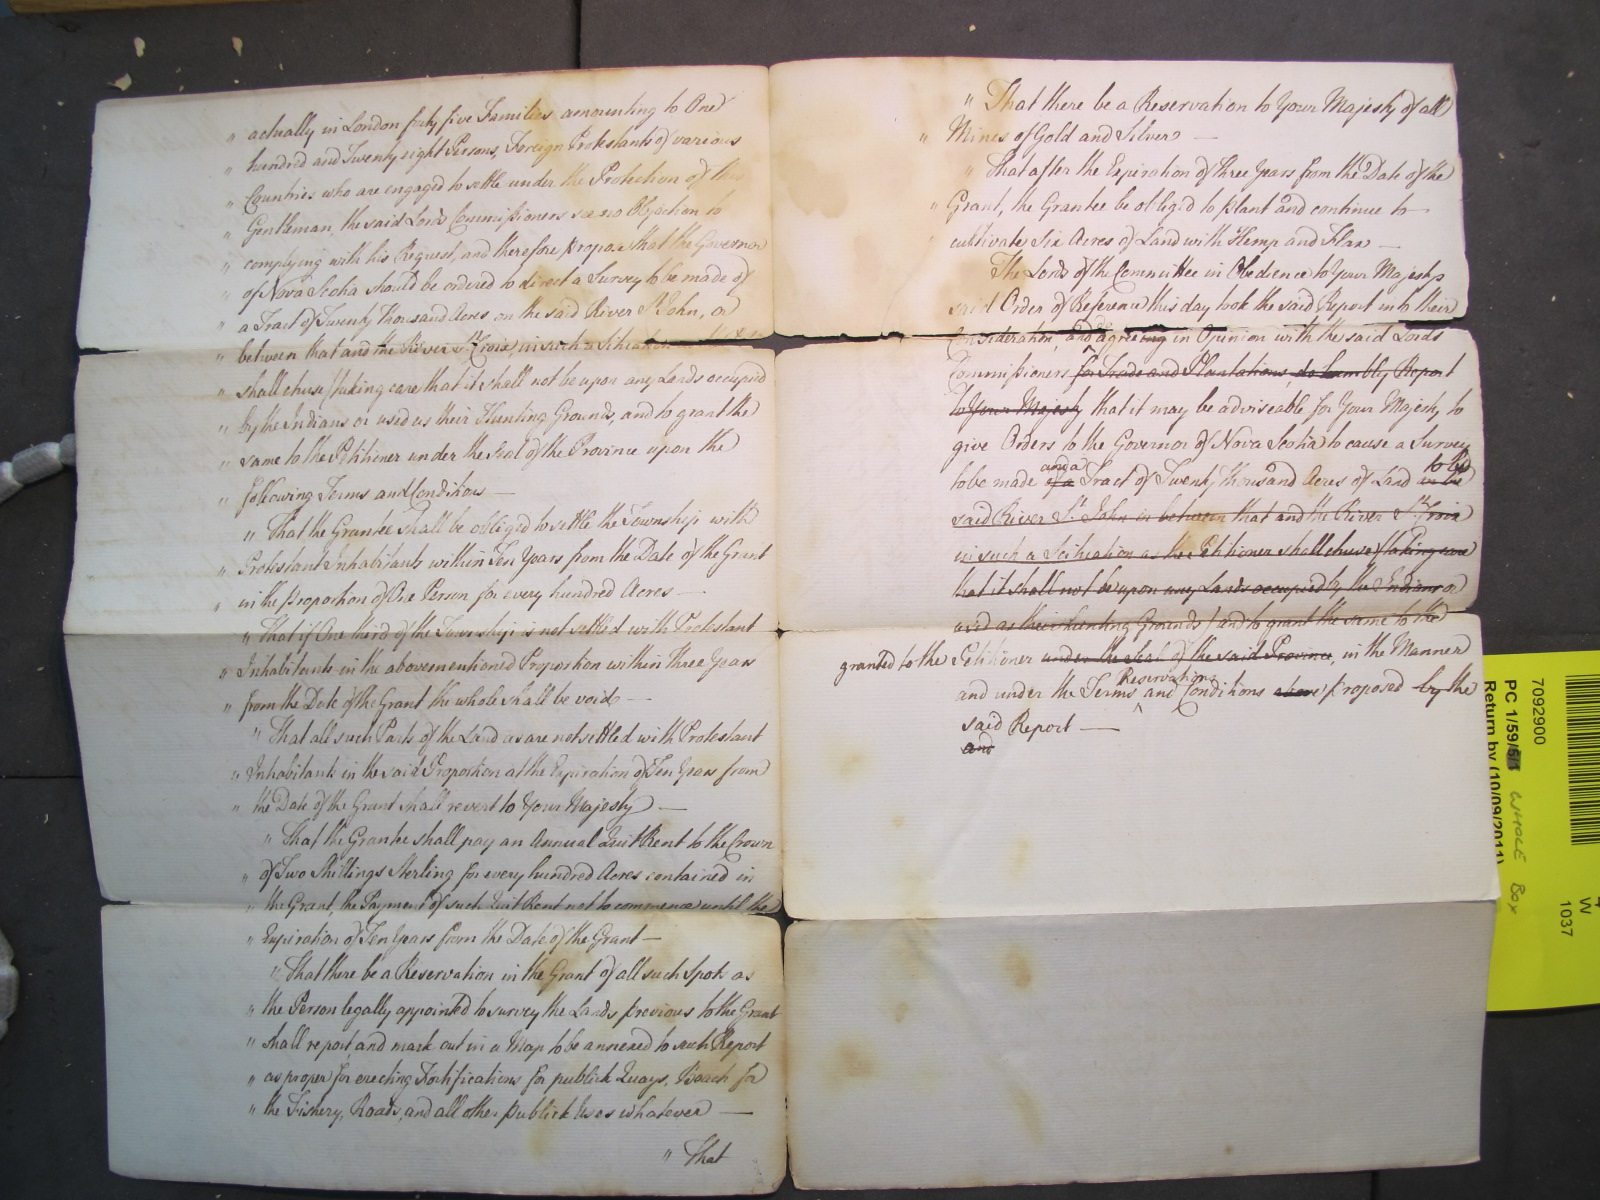 " actually in London forty five Families amounting to One
" hundred and Twenty eight Persons, Foreign Protestants of various
" Countries who are engaged to settle under the Protection of this
" Gentleman, the said Lords Commissioners see no Objection to
" complying with his Request, and therefore propose that the Governor
" of Nova Scotia should be ordered to direct a Survey to be made of
" a Tract of Twenty Thousand Acres on the said River St. John, or
" between that and the River St. Croix, in such a Situation
" shall chuse (taking care that it shall not be upon any Lands occupied
" by the Indians or used as their Hunting Grounds, and to grant the
" same to the Petitioner under the Seal of the Province upon the
" following Terms and Conditions —
" That the Grantee shall be obliged to settle the Township with
" Protestant Inhabitants within Ten Years from the Date of the Grant
" in the proportion of One Person for every hundred Acres —
" That if One third of the Township is not settled with Protestant
" Inhabitants in the abovementioned Proportion within three Years
" from the Date of the Grant the whole shall be void —
" That all such Parts of the Land as are not settled with Protestant
" Inhabitants in the said Proportion at the Expiration of Ten Years from
" the Date of the Grant shall revert to Your Majesty —
" That the Grantee shall pay an Annual Quit Rent to the Crown
" of Two Shillings Sterling for every hundred Acres contained in
" the Grant, the Payment of such Quit Rent not to commence until the
" Expiration of Ten Years from the Date of the Grant —
" That there be a Reservation in the Grant of all such Spots as
" the Person legally appointed to survey the Lands previous to the Grant
" shall report and mark out in a Map to be annexed to such Report
" as proper for erecting Fortifications for publick Quays, Beach for
" the Fishery, Roads, and all other publick Uses whatever —
" That
" That there be a Reservation to Your Majesty of all
" Mines of Gold and Silver —
" That after the Expiration of three Years from the Date of the
" Grant, the Grantee be obliged to plant and continue to
" cultivate Six Acres of Land with Hemp and Flax —
The Lords of the Committee in Obedience to Your Majestys
said Order of Reference this day took the said Report into their
Consideration, and agreeing in Opinion with the said Lords
Commissioners for Trade and Plantations, do humbly Report
to Your Majesty that it may be adviseable for Your Majesty to
give Orders to the Governor of Nova Scotia to cause a Survey
and a to be
to be made of a Tract of Twenty thousand Acres of Land on the
said River St. John or between that and the River St. Croix
in such a Scituation as the Petitioner shall chuse (taking care
that it shall not be upon any Lands occupied by the Indians or
used as their Hunting Grounds) and to grant the same to the
granted to the Petitioner under the Seal of the said Province, in the Manner
Reservations
and under the Terms and Conditions above proposed by the
said Report —
and
7092900
PC 1/59/5/1
Return by (10/09/2011)
WHOLE BOX
W
1037